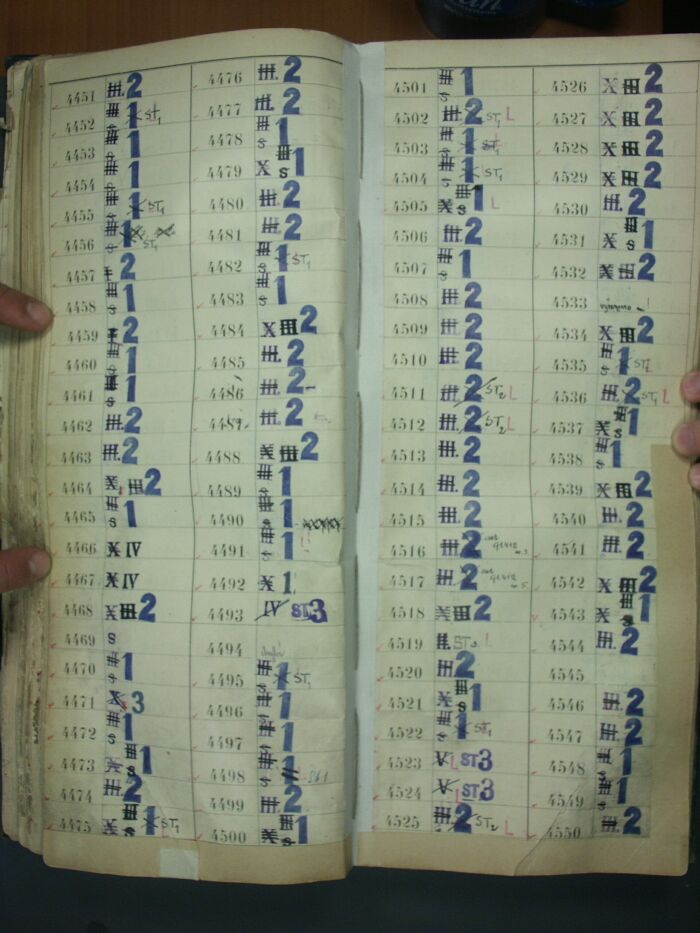 4451 III. 2
4452 III s 1 ST1
4453 III s 1
4454 III s 1
4455 III s 1 ST1
4456 III s 1 ST1
4457 2
4458 III s 1
4459 2
4460 III s 1
4461 III s 1
4462 III. 2
4463 III. 2
4464 X III 2
4465 III s 1
4466 X IV
4467 X IV
4468 X III 2
4469 s
4470 III s 1
4471 X 3
4472 III s 1
4473 X III s 1
4474 III. 2
4475 X III s 1 ST1
4476 III. 2
4477 III. 2
4478 III s 1
4479 X III s 1
4480 III. 2
4481 III. 2
4482 III s 1 ST1
4483 III s 1
4484 X III 2
4485 III. 2
4486 III. 2
4487 III. 2
4488 X III 2
4489 III s 1
4490 III s 1
4491 III s 1
4492 X 1
4493 IV ST3
4494
4495 III s 1 ST1
4496 III s 1
4497 III s 1
4498 III s 1
4499 III. 2
4500 X III s 1
4501 III s 1
4502 III. 2 ST1 L
4503 III s 1 ST1
4504 III s 1 ST1
4505 X III s 1 L
4506 III. 2
4507 III s 1
4508 III. 2
4509 III. 2
4510 III. 2
4511 III. 2 ST2 L
4512 III. 2 ST2 L
4513 III. 2
4514 III. 2
4515 III. 2
4516 III. 2
4517 III. 2
4518 X III 2
4519 II. ST2 L
4520 III. 2
4521 X III s 1
4522 III s 1 ST1
4523 V L ST3
4524 V L ST3
4525 III. 2 ST2 L
4526 X III 2
4527 X III 2
4528 X III 2
4529 X III 2
4530 III. 2
4531 X III s 1
4532 X III 2
4533
4534 X III 2
4535 III s 1 ST1
4536 III. 2 ST1 L
4537 X III s 1
4538 III s 1
4539 X III 2
4540 III. 2
4541 III. 2
4542 X III 2
4543 X III s 1
4544 III. 2
4545
4546 III. 2
4547 III. 2
4548 III s 1
4549 III s 1
4550 III. 2